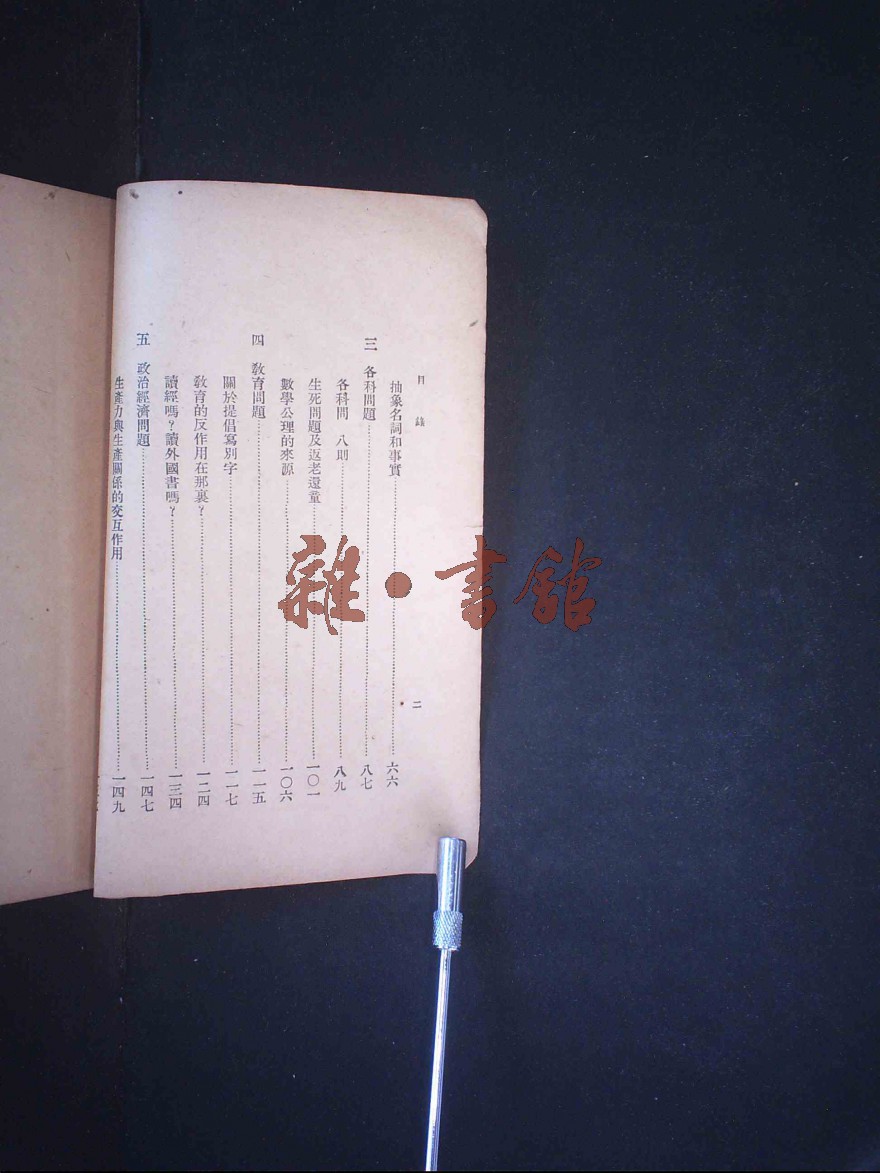 目錄
二
抽象名詞和事實……六六
三 各科問題……八七
各科問 八則……八九
生死問題及返老還童……一〇一
數學公理的來源……一〇六
四 教育問題……一一五
關於提倡寫別字……一一七
教育的反作用在那裏？……一二四
讀經嗎？讀外國書嗎？……一三四
五 政治經濟問題……一四七
生產力與生產關係的交互作用……一四九
雜·書館